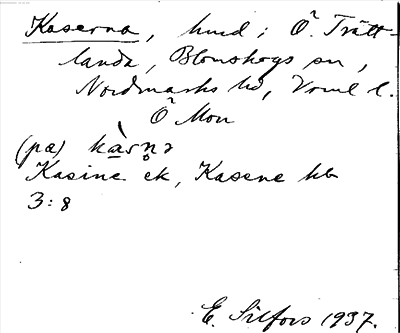 Kaserna, hmd i Ö. Trätt-
landa, Blomskogs sn,
Nordmarks hd, Vrml l.
Ö Mon
(pa) kàsn̥ə
Kasine ek, Kasene hb
3:8
E. Silfors 1937.